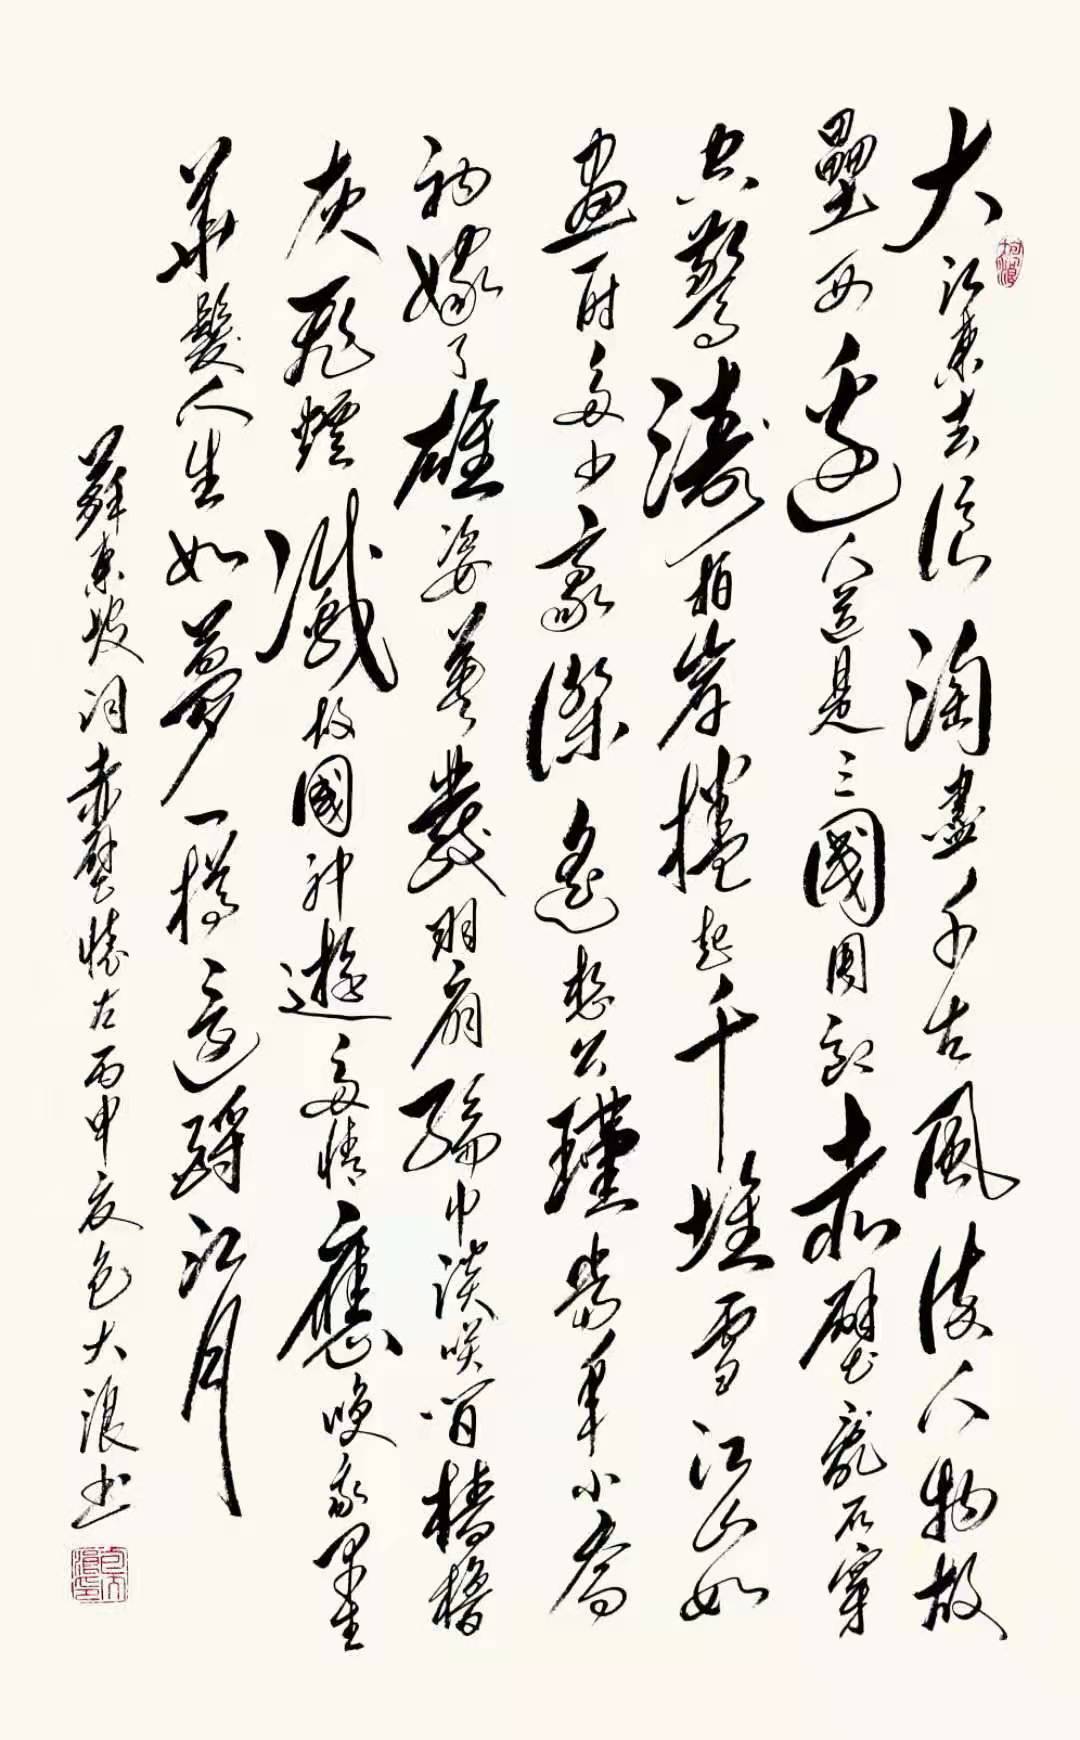 大江東去浪淘盡千古風流人物故
壘西邊人道是三國周郎赤壁亂石穿
空驚濤拍岸捲起千堆雪江山如
畫一時多少豪傑遙想公瑾當年小喬
初嫁了雄姿英發羽扇綸巾談咲間檣櫓
灰飛煙滅故國神遊多情應咲我早生
華髮人生如夢一樽還酹江月
蘇東坡詞赤壁懷古丙申夏包大浪書